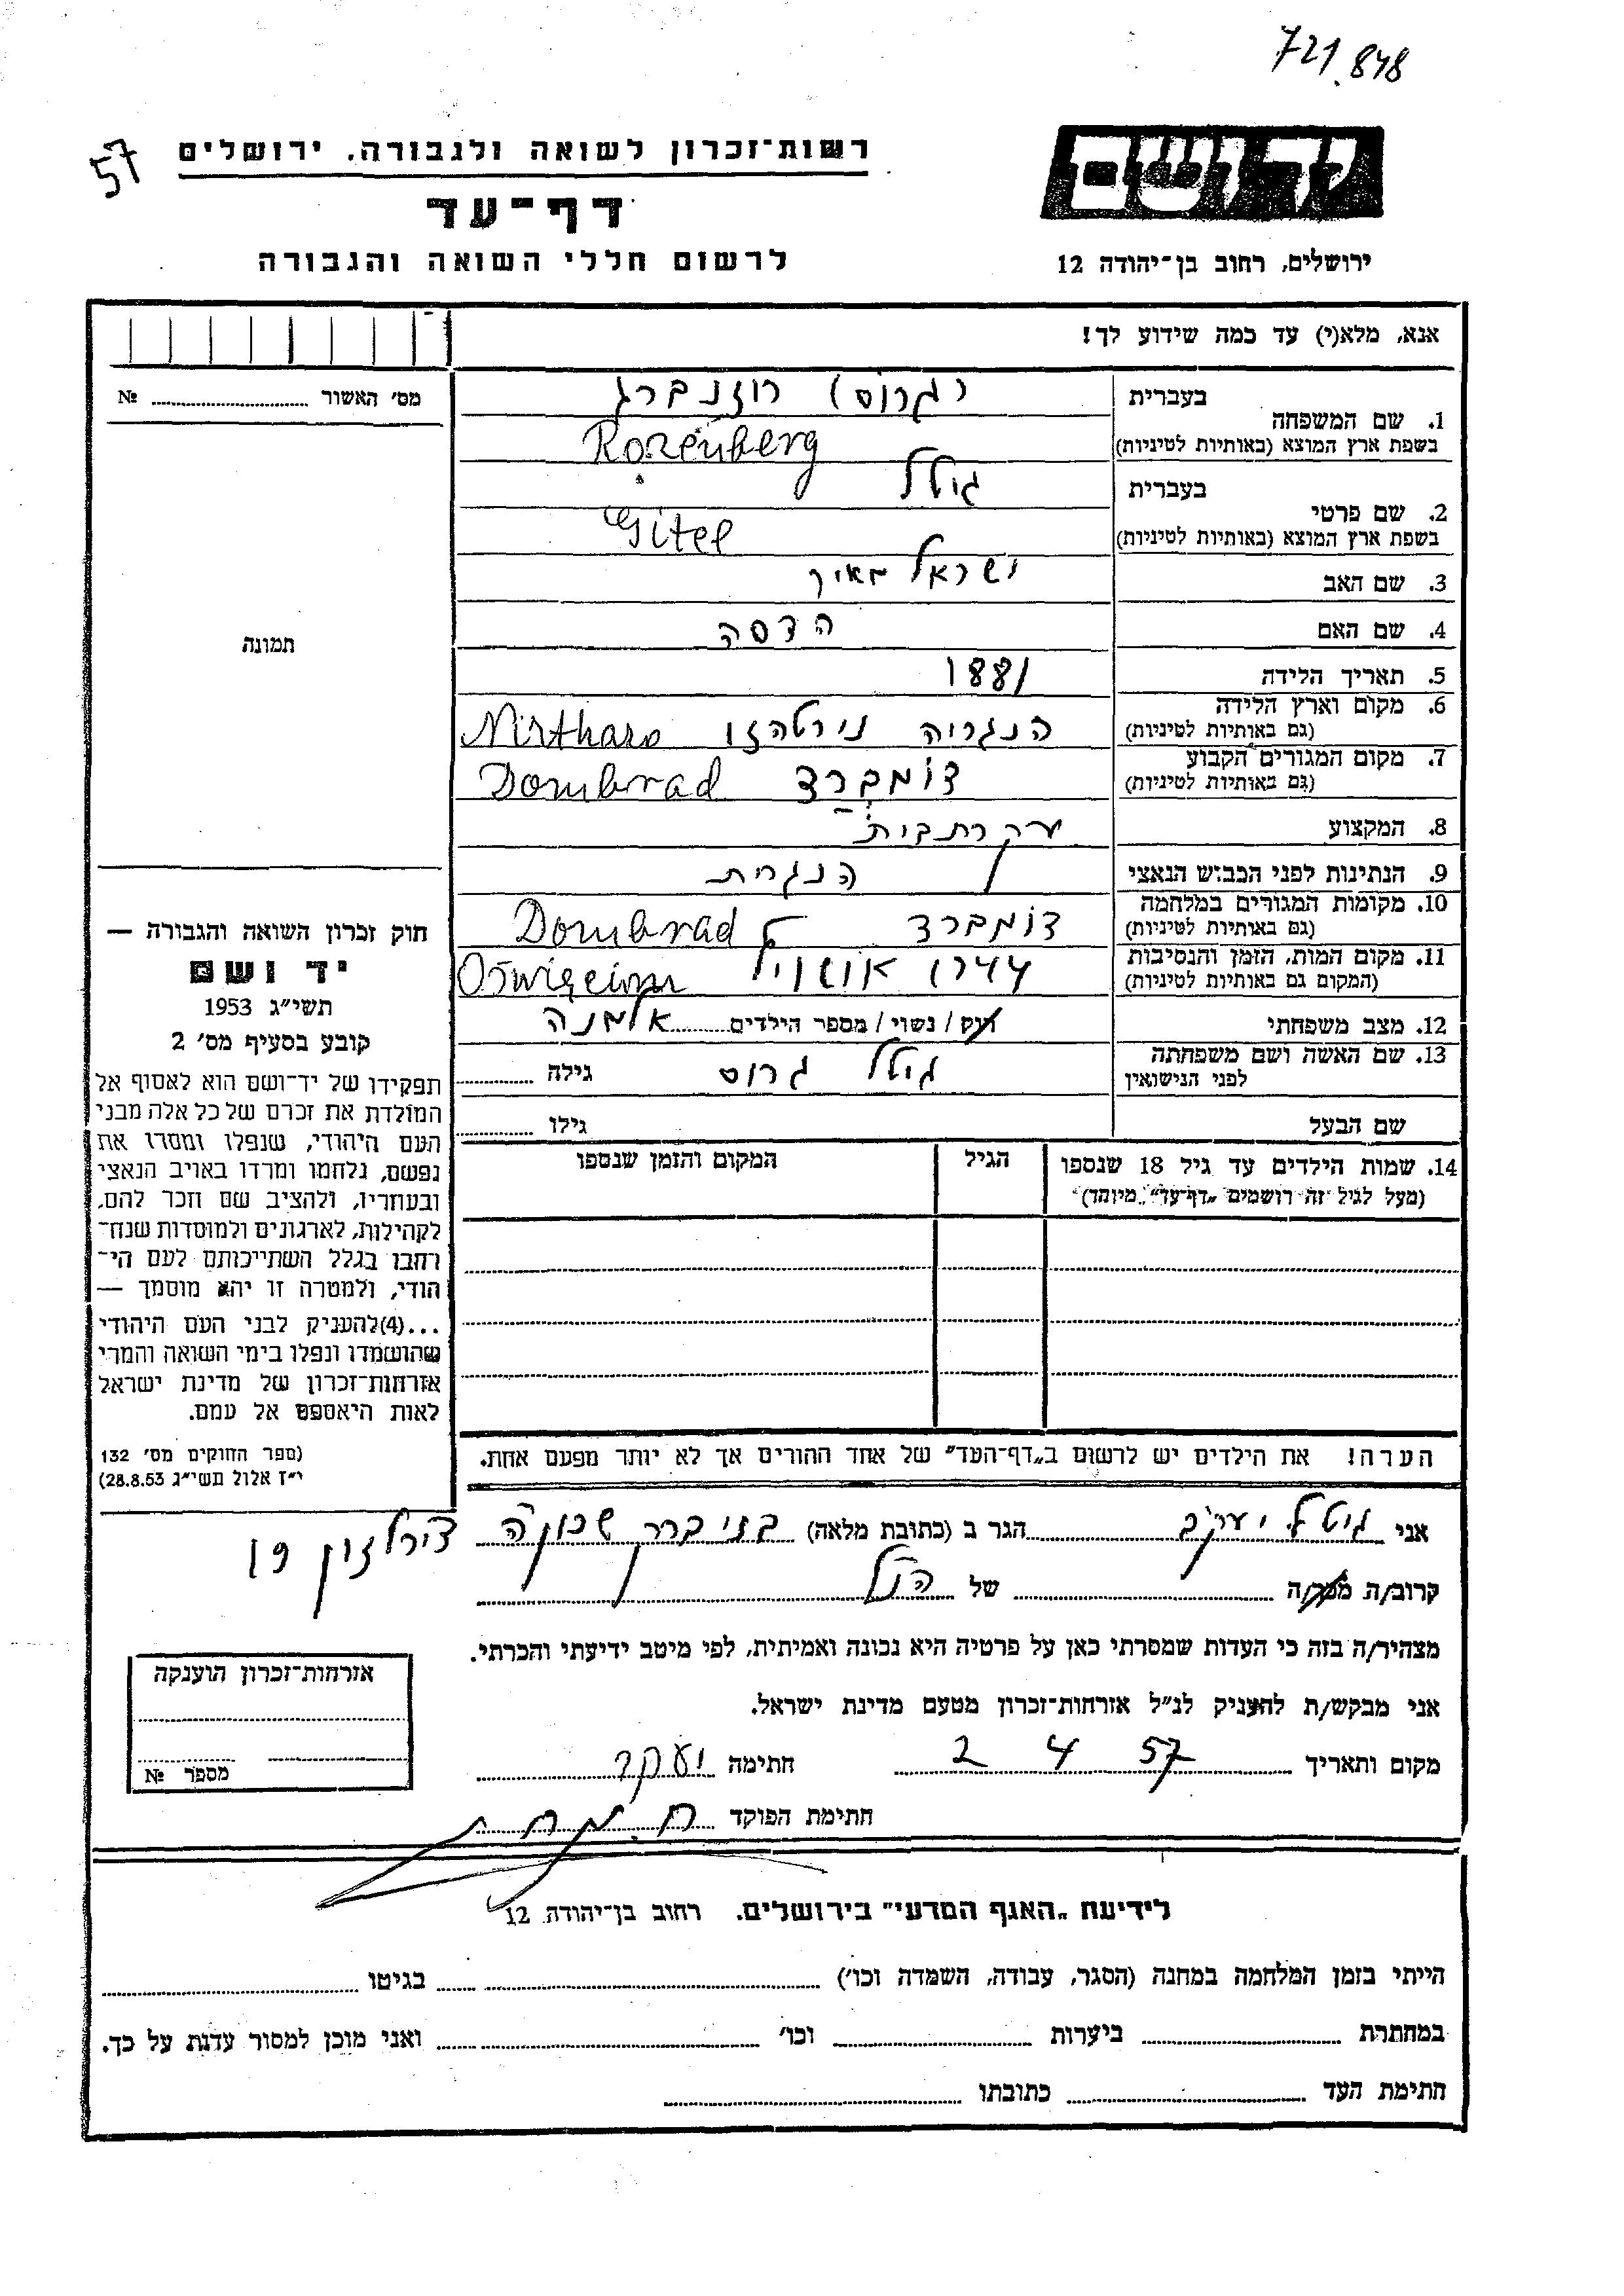 721.848
57
רשות־זכרון לשואה ולגבורה. ירושלים
יד ושם
דף־עד
לרשום חללי השואה והגבורה
ירושלים, רחוב בן־יהודה 12
אנא, מלא(י) עד כמה שידוע לך!
מס׳ האשור № 
1. שם המשפחה בעברית (גרוס) רוזנברג
בשפת ארץ המוצא (באותיות לטיניות) Rozenberg
2. שם פרטי בעברית גיטל
בשפת ארץ המוצא (באותיות לטיניות) Gitel
3. שם האב ישראל מאיר
4. שם האם הדסה
תמונה
5. תאריך הלידה 1881
6. מקום וארץ הלידה (גם באותיות לטיניות) הנגריה נירטהזו
7. מקום המגורים הקבוע (גם באותיות לטיניות) דומברד Dombrad
8. המקצוע עקרת בית
9. הנתינות לפני הכבוש הנאצי הנגרית
10. מקומות המגורים במלחמה (גם באותיות לטיניות) דומברד Dombrad
11. מקום המות, הזמן והנסיבות (המקום גם באותיות לטיניות) 1944 Oświęcim
12. מצב משפחתי רוק / נשוי / מספר הילדים אלמנה
13. שם האשה ושם משפחתה לפני הנישואין גיטל גרוס גילה
שם הבעל גילו
14. שמות הילדים עד גיל 18 שנספו הגיל המקום והזמן שנספו
(מעל לגיל זה רושמים „דף־עד״ מיוחד)
חוק זכרון השואה והגבורה —
יד ושם
תשי״ג 1953
קובע בסעיף מס׳ 2
תפקידו של יד־ושם הוא לאסוף אל
המולדת את זכרם של כל אלה מבני
העם היהודי, שנפלו ומסרו את
נפשם, נלחמו ומרדו באויב הנאצי
ובעוזריו, ולהציב שם וזכר להם,
לקהילות, לארגונים ולמוסדות שנח־
רבו בגלל השתייכותם לעם הי־
הודי, ולמטרה זו יהא מוסמך —
...(4)להעניק לבני העם היהודי
שהושמדו ונפלו בימי השואה והמרי
אזרחות־זכרון של מדינת ישראל
לאות היאספם אל עמם.
(ספר החוקים מס׳ 132
י״ז אלול תשי״ג 28.8.53)
הערה! את הילדים יש לרשום ב„דף־העד״ של אחד ההורים אך לא יותר מפעם אחת.
אני גיטל יעקב הגר ב (כתובת מלאה) בני ברק שכון ה 19
קרוב/ה מכר/ה של הנ״ל
מצהיר/ה בזה כי העדות שמסרתי כאן על פרטיה היא נכונה ואמיתית, לפי מיטב ידיעתי והכרתי.
אני מבקש/ת להעניק לנ״ל אזרחות־זכרון מטעם מדינת ישראל.
מקום ותאריך 2 4 57 חתימה יעקב
חתימת הפוקד
אזרחות־זכרון הוענקה
מספר №
לידיעת „האגף המדעי״ בירושלים. רחוב בן־יהודה 12
הייתי בזמן המלחמה במחנה (הסגר, עבודה, השמדה וכו׳) בגיטו
במחתרת ביערות וכו׳ ואני מוכן למסור עדות על כך.
חתימת העד כתובתו